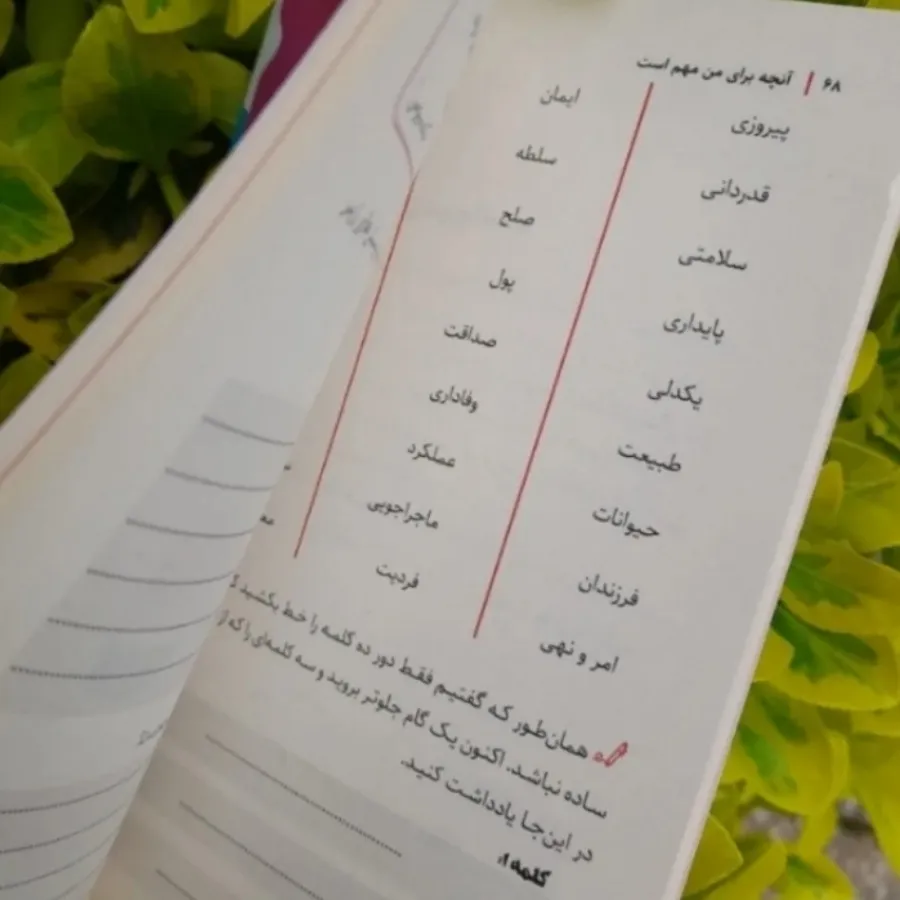 ۶۸ | آنچه برای من مهم است
پیروزی
قدردانی
سلامتی
پایداری
یکدلی
طبیعت
حیوانات
فرزندان
امر و نهی
ایمان
سلطه
صلح
پول
صداقت
وفاداری
عملکرد
ماجراجویی
فردیت
همان‌طور که گفتیم فقط دور ده کلمه را خط بکشید
ساده نباشد. اکنون یک گام جلوتر بروید و سه کلمه‌ای را که از
در این‌جا یادداشت کنید.
کلمه ۱: